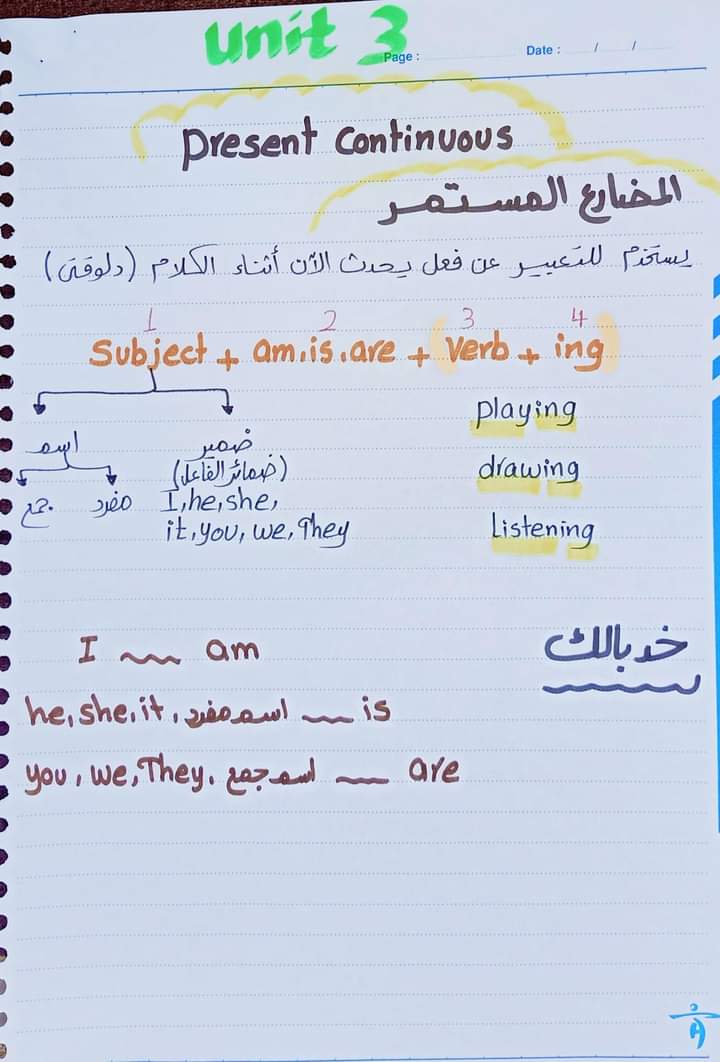 unit 3
Page :
Date : / /
Present Continuous
المضارع المستمر
يستخدم للتعبير عن فعل يحدث الآن أثناء الكلام (دلوقتى)
1 2 3 4
Subject + am.is.are + (verb + ing)
playing
اسم
ضمير
(ضمائر الفاعل)
drawing
جمع مفرد
I, he, she,
it, you, we, They
Listening
خد بالك
I am
he, she, it, اسم مفرد is
you, we, They, اسم جمع are